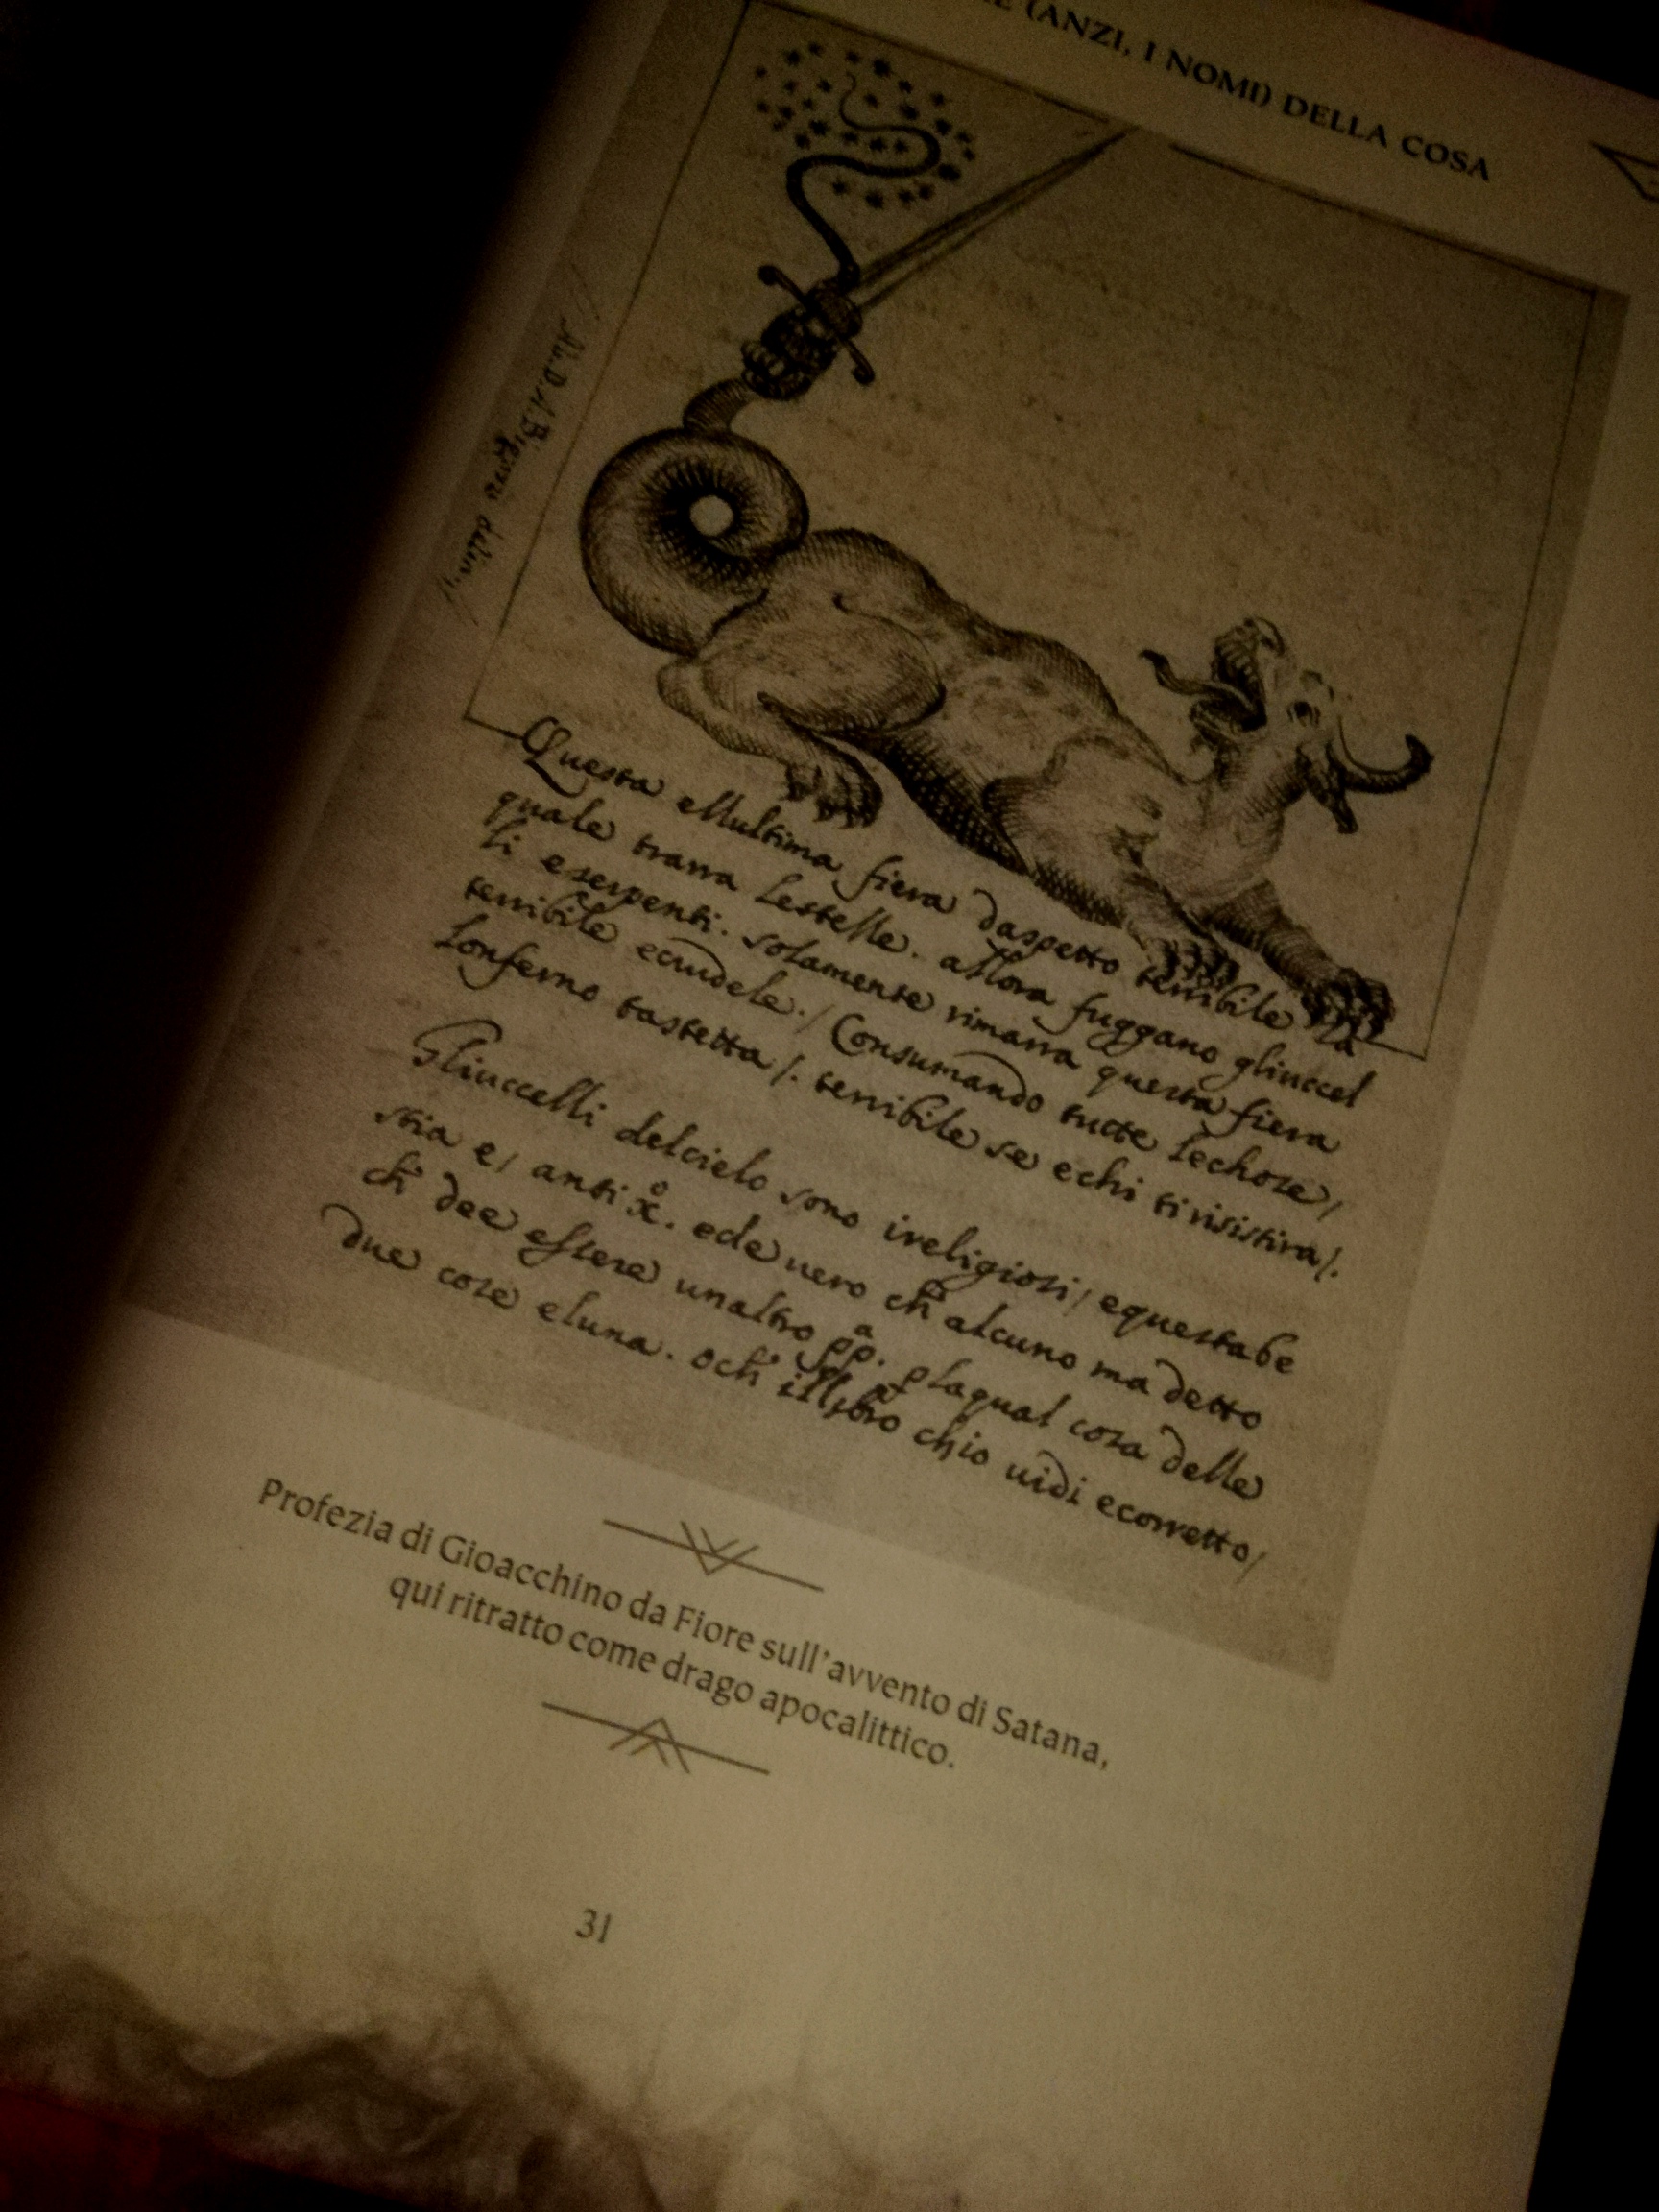 (ANZI, I NOMI) DELLA COSA
Questa ellultima fiera daspetto terribile la
quale trarra lestelle. allora fuggano gliuccel
li eserpenti. solamente rimarra questa fiera
terribile ecrudele. / Consumando tutte lechose /
Lonferno tastetta /. terribile se echi tirisistira /.
Gliuccelli delcielo sono ireligiosi / equestabe
stia e / anti x̊. ede uero ch̄ alcuno ma detto
ch̄ dee essere unaltro pp. plaqual cosa delle
due cose eluna. och̄ illibro chio uidi ecorretto /
Profezia di Gioacchino da Fiore sull'avvento di Satana,
qui ritratto come drago apocalittico.
31